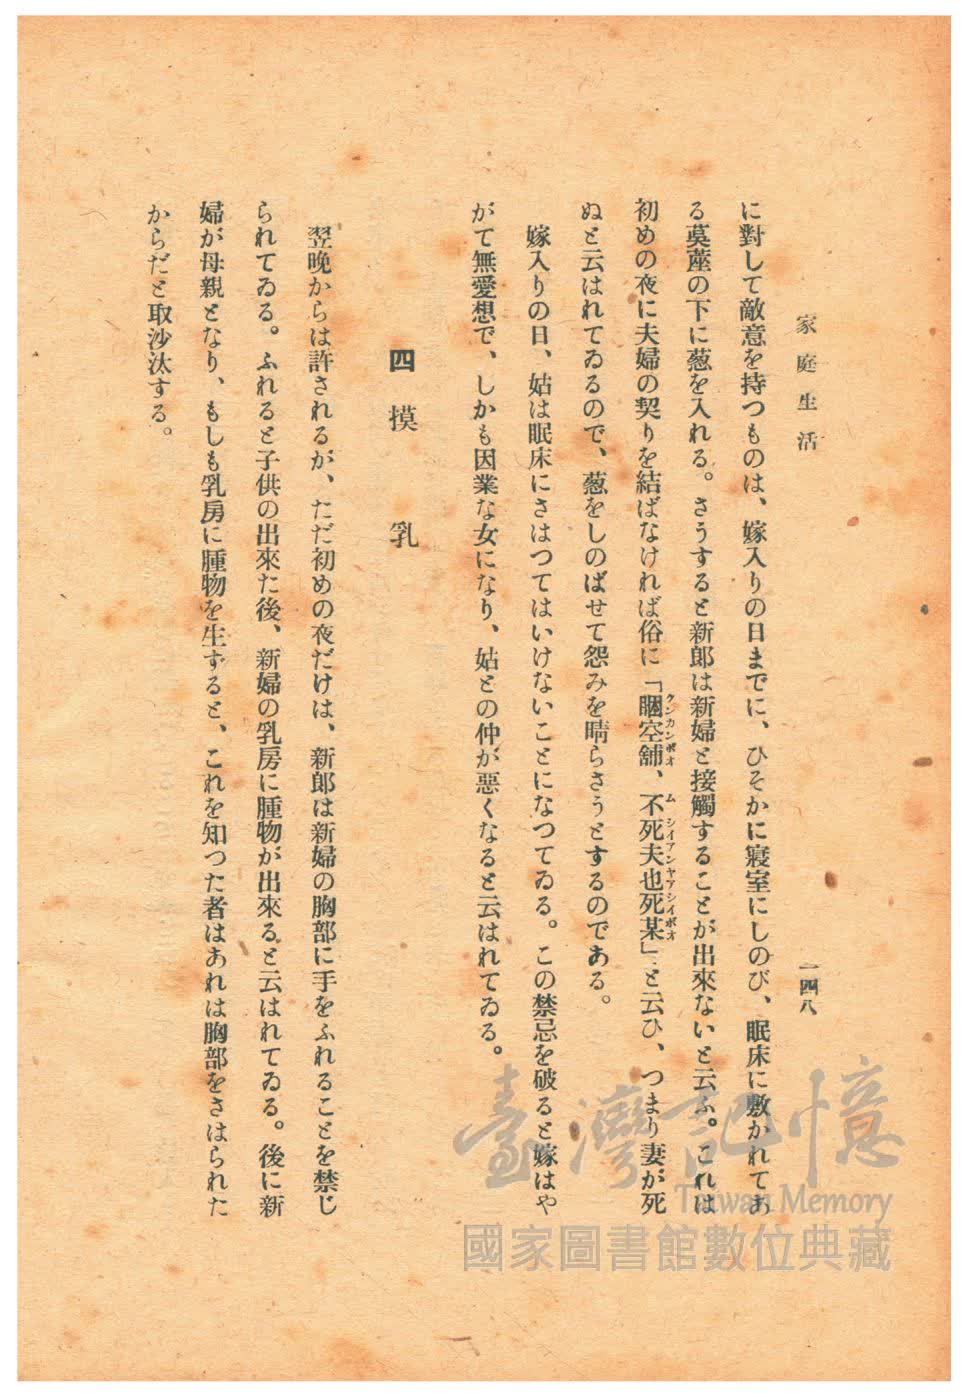 家庭生活
一四八
に對して敵意を持つものは、嫁入りの日までに、ひそかに寢室にしのび、眠床に敷かれてあ
る茣蓙の下に葱を入れる。さうすると新郎は新婦と接觸することが出來ないと云ふ。これは
初めの夜に夫婦の契りを結ばなければ俗に「睏空舖、不死夫也死某」と云ひ、つまり妻が死
クンカンポオ ム シイアンヤアシイボオ
ぬと云はれてゐるので、葱をしのばせて怨みを晴らさうとするのである。
嫁入りの日、姑は眠床にさはつてはいけないことになつてゐる。この禁忌を破ると嫁はや
がて無愛想で、しかも因業な女になり、姑との仲が惡くなると云はれてゐる。
四 摸乳
翌晩からは許されるが、ただ初めの夜だけは、新郎は新婦の胸部に手をふれることを禁じ
られてゐる。ふれると子供の出來た後、新婦の乳房に腫物が出來ると云はれてゐる。後に新
婦が母親となり、もしも乳房に腫物を生ずると、これを知つた者はあれは胸部をさはられた
からだと取沙汰する。
臺灣記憶
Taiwan Memory
國家圖書館數位典藏